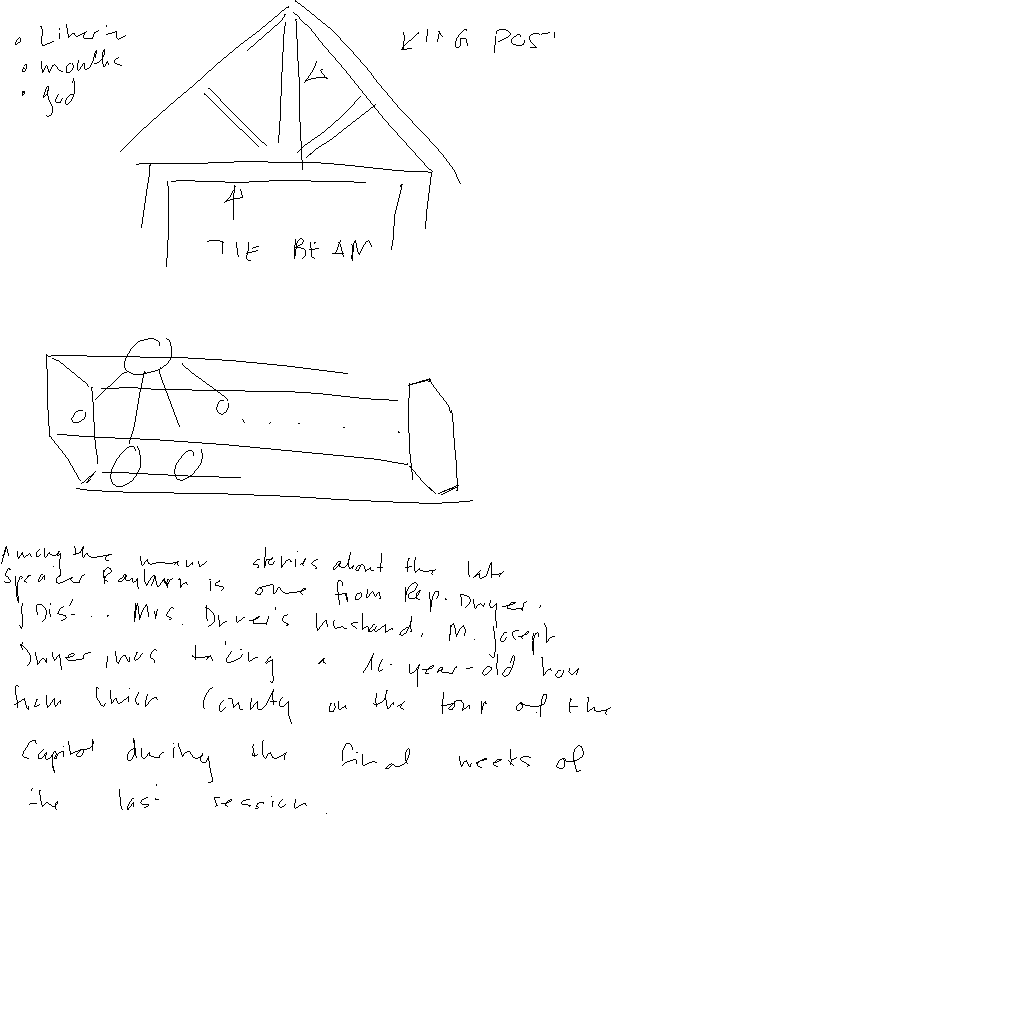 Liberia
months
god
KING POST
TIE BEAM
Among the many stories about the late
Speaker Rayburn is one from Rep. Dwyer.
Mrs. Dwyer's husband, M. Joseph
Dwyer, was taking a year-old boy
from Union County on the tour of the
Capitol during the final weeks of
the last session.